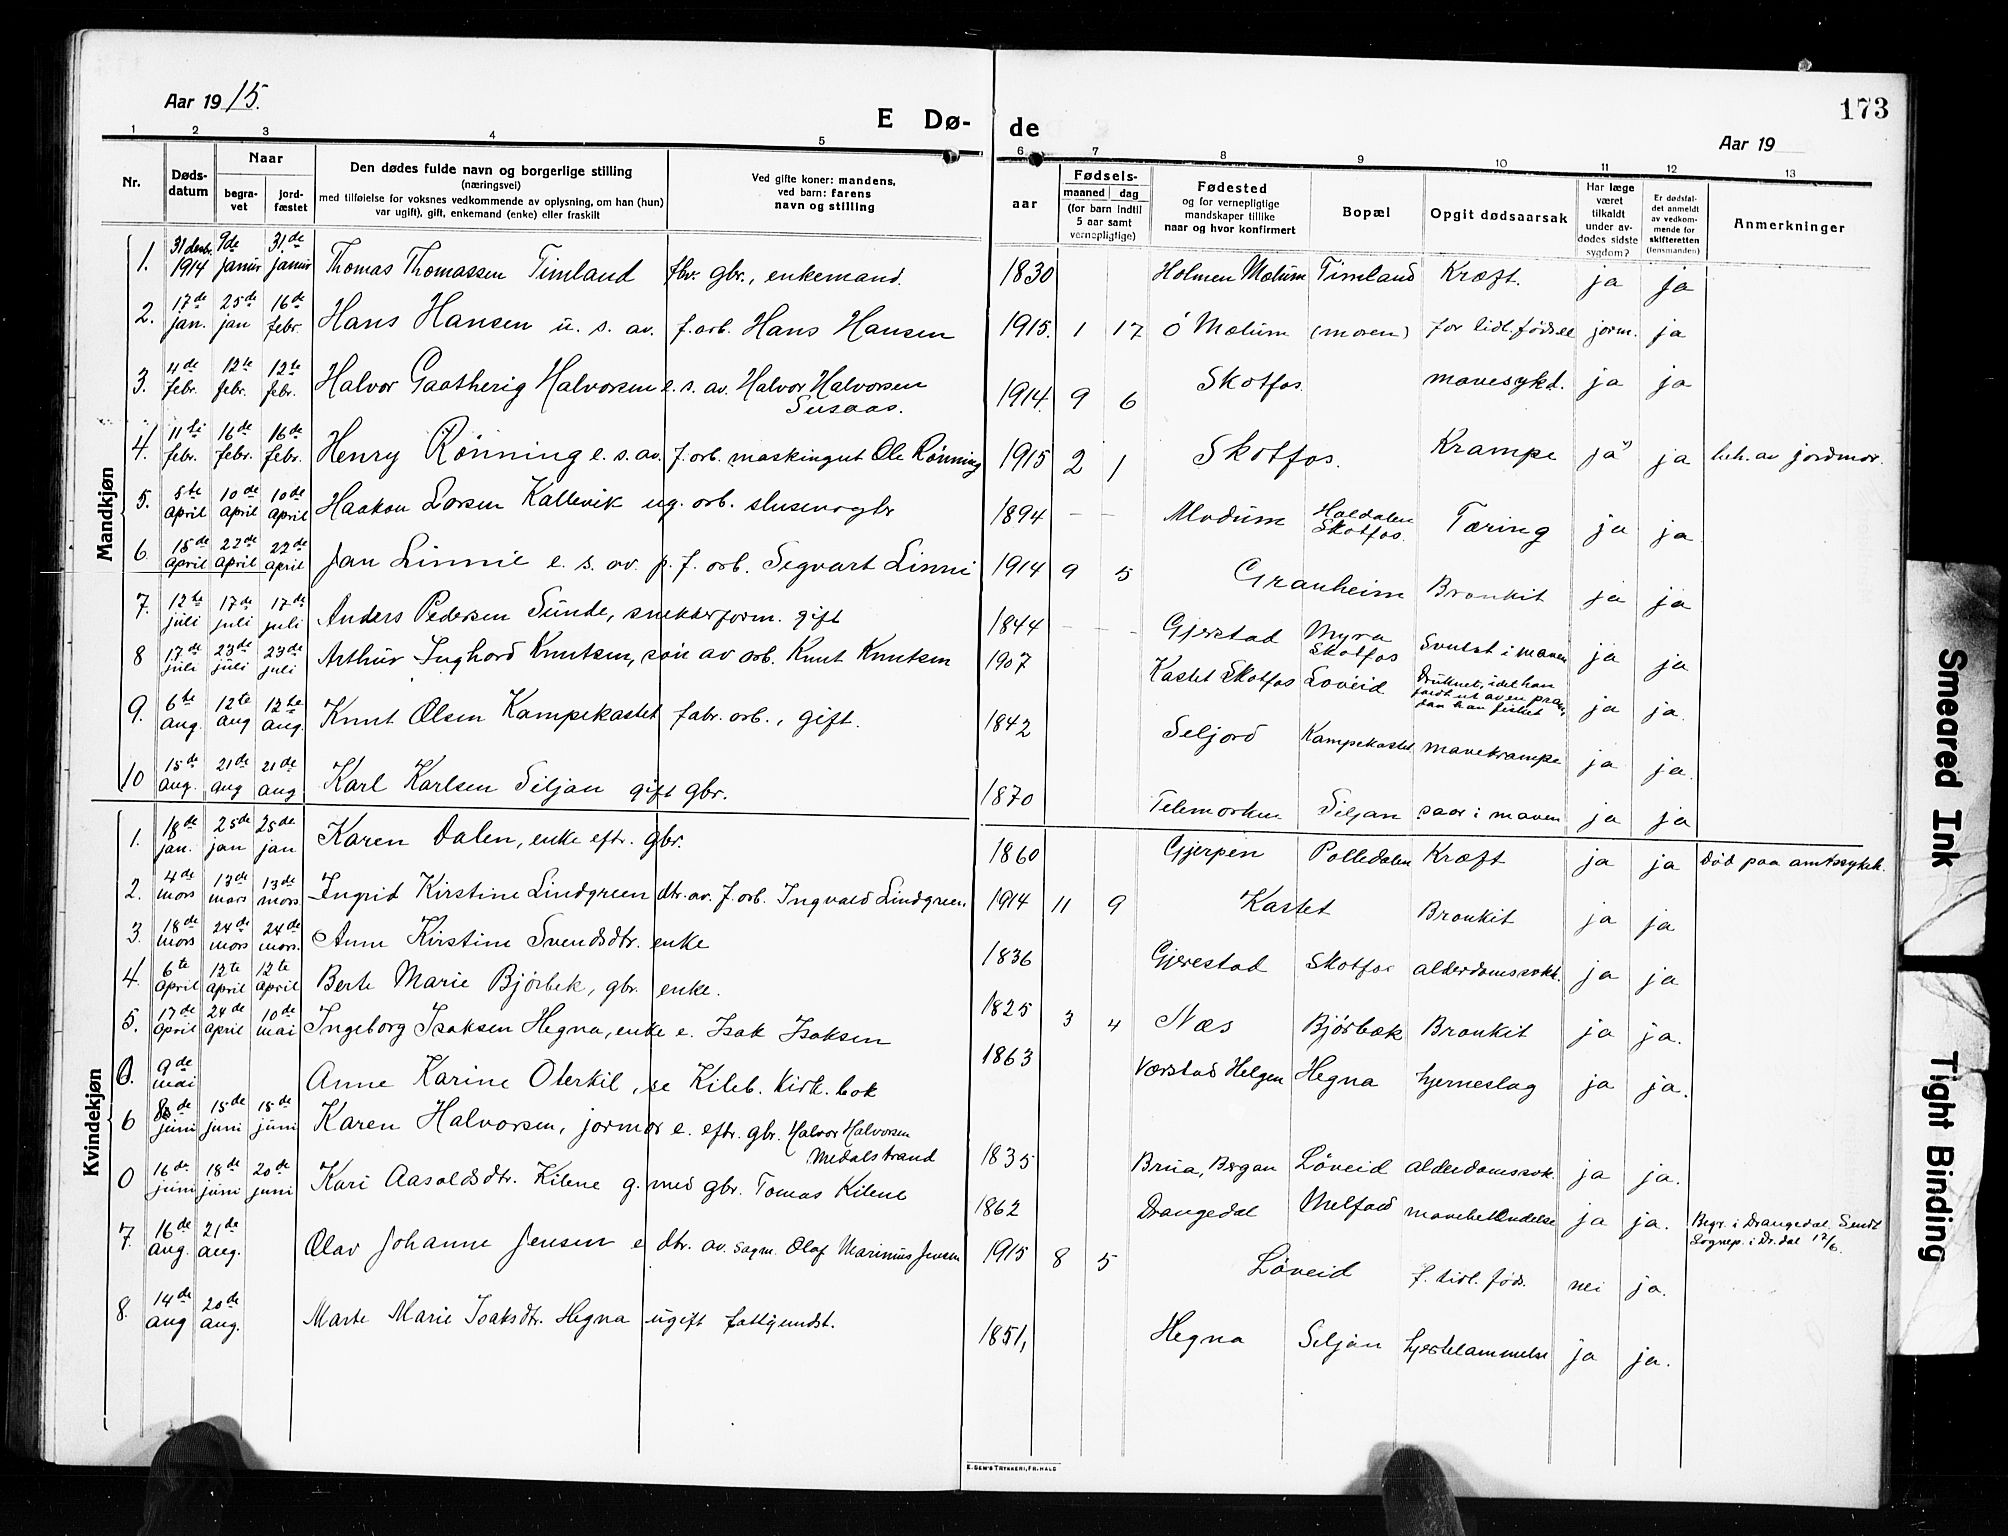 Aar 1915.
E Dø-
de
173
Aar 19
1 2 3 4 5 6 7 8 9 10 11 12 13
Nr.
Døds-
datum
Naar
begra-
vet
jord-
fæstet
Den dødes fulde navn og borgerlige stilling
(næringsvei)
med tilføielse for voksnes vedkommende av oplysning, om han (hun)
var ugift), gift, enkemand (enke) eller fraskilt
Ved gifte koner: mandens,
ved barn: farens
navn og stilling
aar
Fødsels-
maaned dag
(for barn indtil
5 aar samt
vernepligtige)
Fødested
og for vernepligtige
mandskaper tillike
naar og hvor konfirmert
Bopæl
Opgit dødsaarsak
Har læge
været
tilkaldt
under av-
dødes sidste
sygdom?
Er dødsfal-
det anmeldt
av vedkom-
mende for
skifteretten
(lensmanden)
Anmerkninger
Mandkjøn
1. 31 desbr. 1914 9de januar 31.de januar Thomas Thomassen Timland fhv. gbr., enkemand. 1830 Holmen Mælum Timland Kræft. ja ja
2. 17de jan. 25de jan 16de febr. Hans Hansen u. s. av. f.arb. Hans Hansen 1915. 1 17 ó Mælum (moren) for tidl. fødsel jorm. ja
3. 4de febr. 12te febr. 12te febr. Halvor Gaatherig Halvorsen e. s. av. Halvor Halvorsen
Susaas. 1914. 9 6 Skotfos. mavesykd. ja ja
4. 11te febr. 16de febr. 16de febr. Henry Rønning e. s. av. f. arb. maskingut Ole Rønning 1915 2 1 Skotfos. Krampe ja ja beh. av jordmor.
5. 5te April 10de April 10de April Haakon Larsen Kallevik ug. arb. slusevogtr 1894 – – Modum Haldalen
Skotfos. Tæring ja ja
6 15de April 22de April 22de April Jan Linnie e. s. av. p. f. arb. Segvart Linni 1914 9 5 Granheim Bronkit ja ja
7. 12te juli 17de juli 17de juli Anders Pedersen Sunde, snekkerform. gift 1844 – – Gjerstad Myra
Skotfos Svulst i maven ja ja
8 17de juli 23de juli 23de juli Arthur Inghard Knutsen, søn av arb. Knut Knutsen 1907 Kastet Skotfos Løveid Druknet, idet han
faldt ut av en pram,
da han fisket ja ja.
9. 6te aug. 12te aug 12te aug. Knut Olsen Kampekastet fabr. arb., gift. 1842 Seljord Kampekastet mavekrampe ja ja.
10 15de aug. 21de aug 21de aug Karl Karlsen Siljan gift gbr. 1870 Telemarken Siljan saar i maven ja ja
Kvindekjøn
1. 18de jan. 25de jan 25de jan Karen Dalen, enke eftr. gbr. 1860 Gjerpen Polledalen Kræft ja ja død paa amtssykeh.
2. 4de mars 13de mars 13de mars Ingrid Kirstine Lindgreen dtr. av. f. arb. Ingvald Lindgreen. 1914 11 9 Kastet Bronkit ja ja
3. 18de mars 24de mars 24de mars. Anne Kirstine Svendsdtr. enke 1836 Gjerestad Skotfos alderdomssvakk. ja ja
4. 6te April 12te April 12te April Berte Marie Bjørbek, gbr. enke. 1825 3 4 Næs Bjørbæk Bronkit ja ja.
5. 17de April 24de April 10de mai Ingeborg Isaksen Hegna, enke e. Isak Isaksen 1863 Værstad Helgen Hegna hjerneslag ja ja.
0. 9de mai Anne Karine Oterkil, se Kileb. kirk. bok
6 8de juni 15de juni 15de juni Karen Halvorsen, jormor e. eftr. gbr. Halvor Halvorsen
Medalstrand 1835 Brua, Bergan Løveid alderdomssvak. ja ja.
0 16de juni 18de juni 20de juni Kari Aasoldsdtr. Kilene g. med gbr. Tomas Kilene 1862 Drangedal Melfald mavebetændelse ja ja. Begr. i Drangedal. Sendt
Sognep. i Dr.dal 17/6.
7. 16de aug. 21de aug. Olav Johanne Jensen e dtr. av. sagm. Olaf Marinius Jensen 1915 8 5 Løveid f. tidl. føds. nei ja.
8. 14de aug 20de aug. Marte Marie Isaksdtr. Hegna ugift fattigundst. 1851, Hegna Siljan hjertelammelse ja ja.
E. SEM'S TRYKKERI, FR.HALD
Smeared Ink
Tight Binding